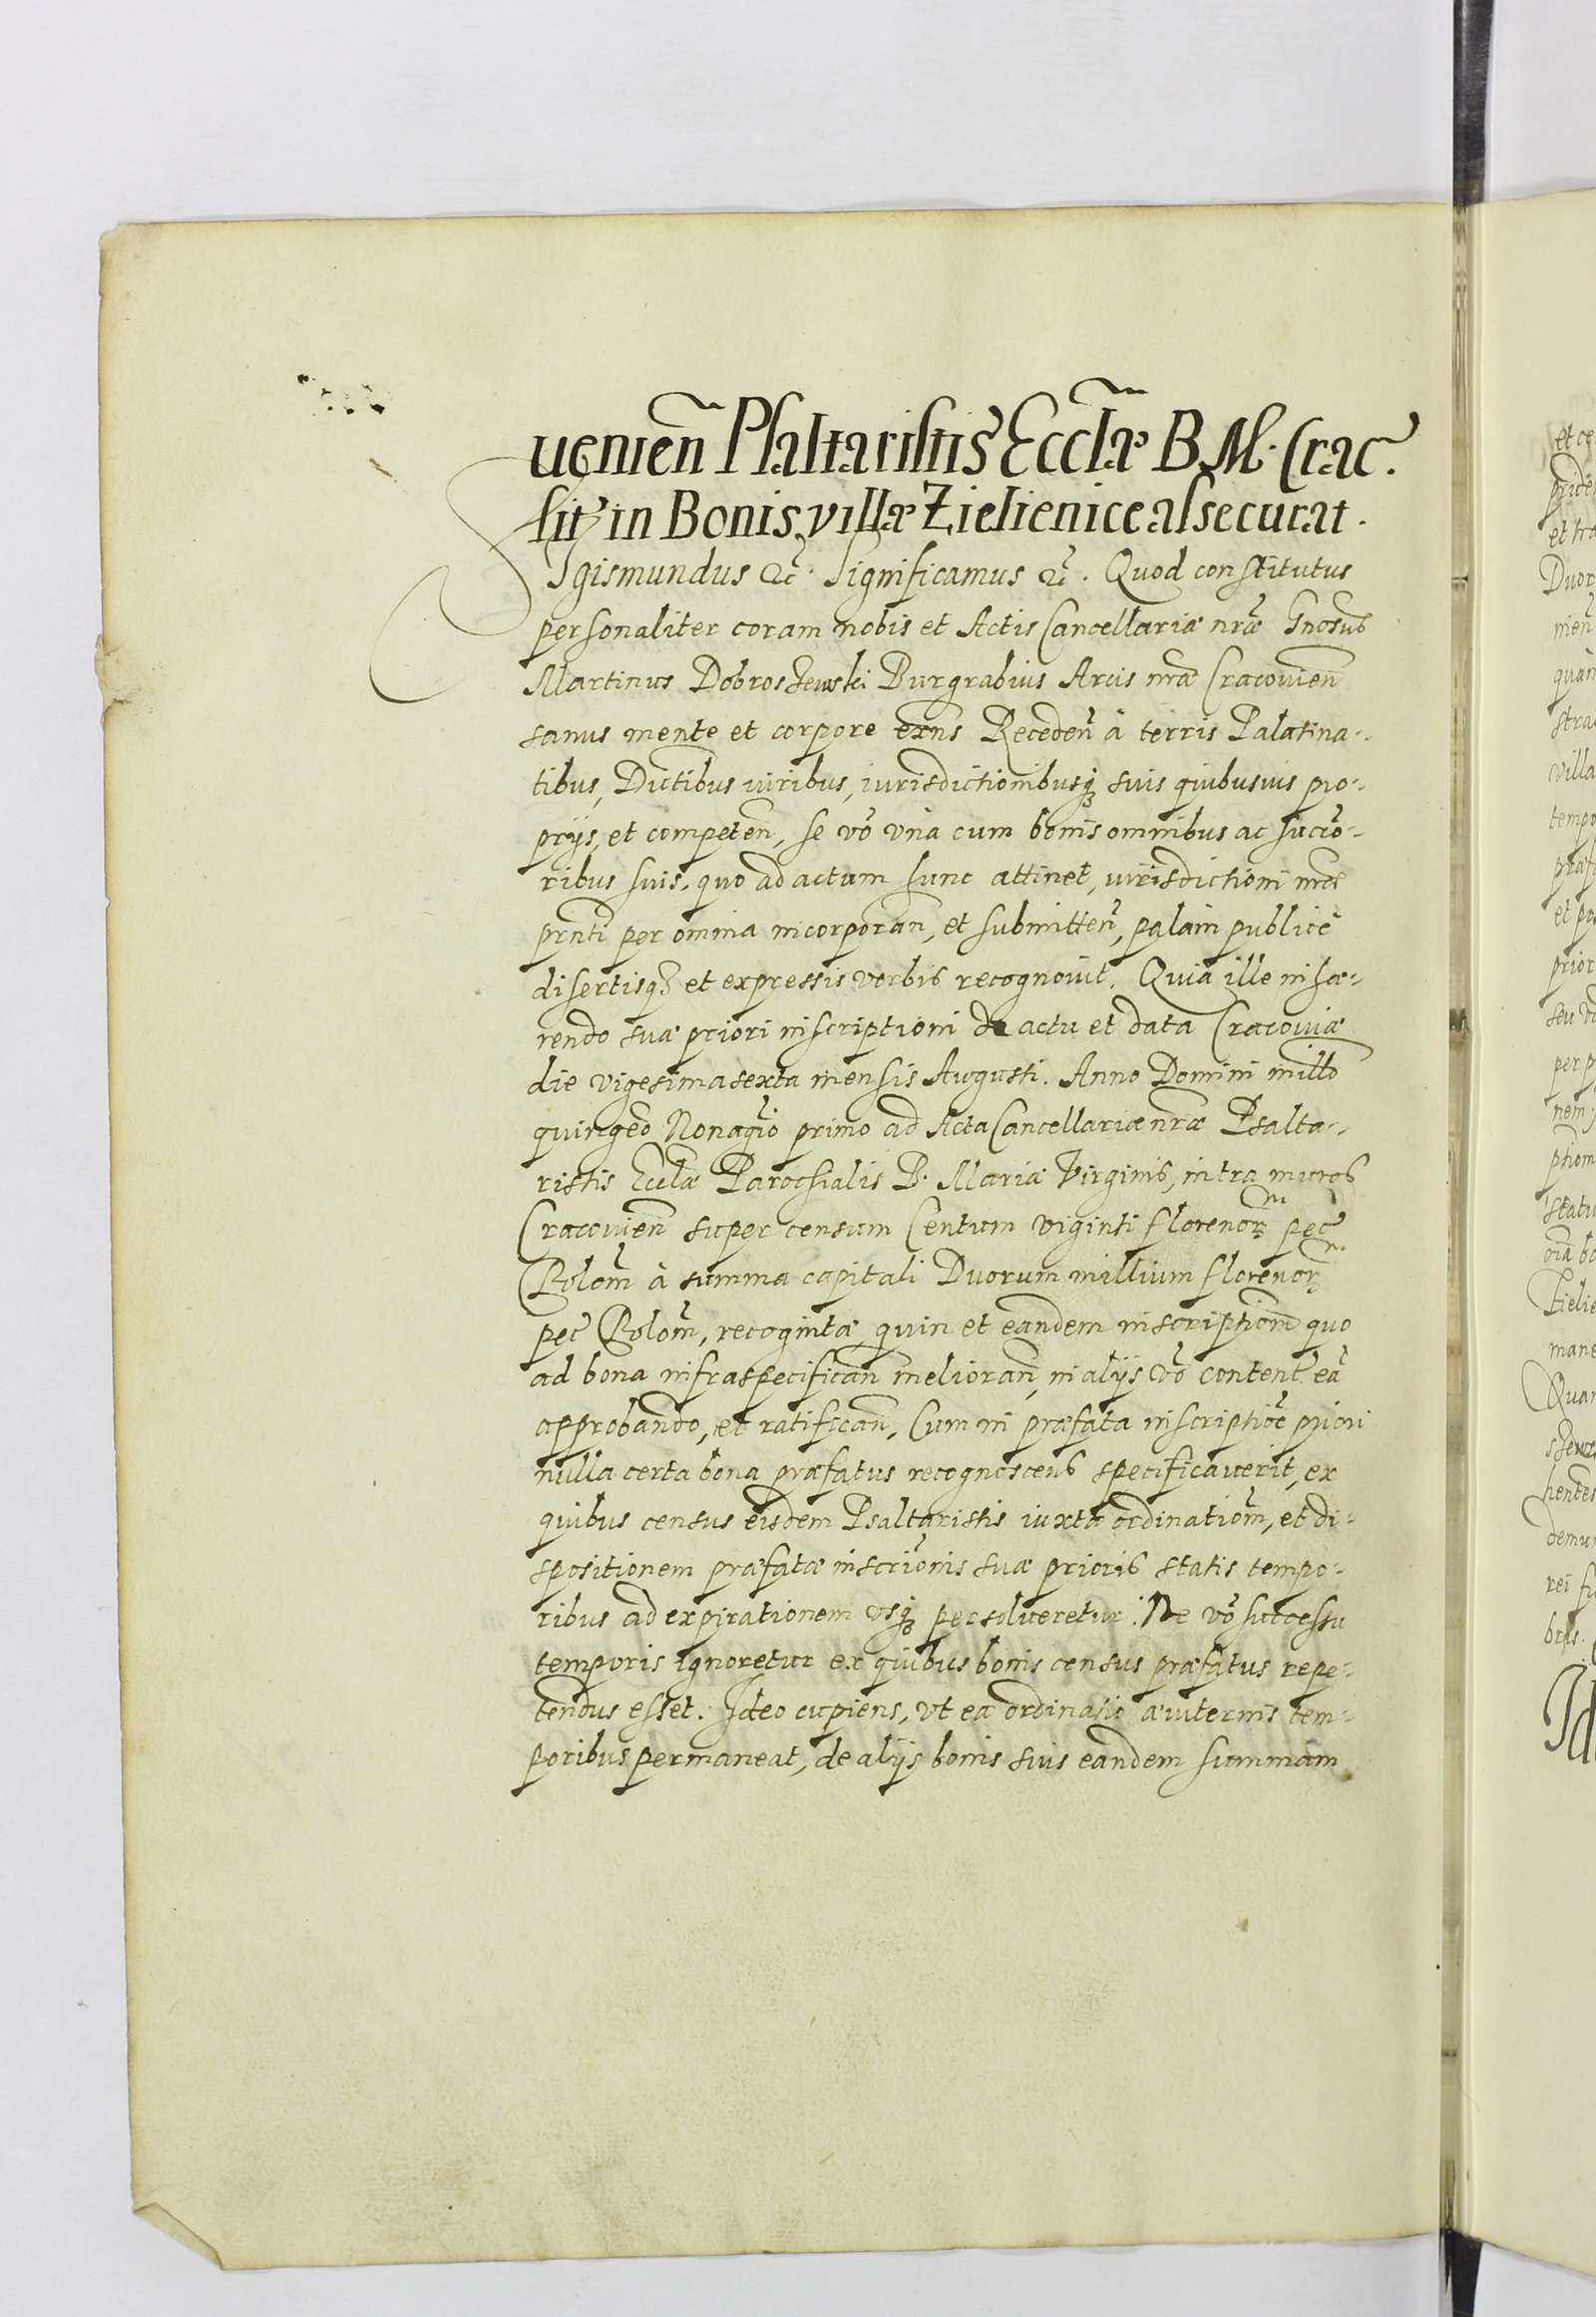 uenien̄ Psaltaristis Eccl̄æ B. M. Crac.
sit in Bonis villæ Zielienice assecurat.
Sigismundus &c. Significamus &c. Quod constitutus
personaliter coram nobis et Actis Cancellariæ nr̄æ Gnosus
Martinus Dobroszewski Burgrabius Arcis nr̄æ Cracouien̄
sanus mente et corpore exn̄s Receden̄ à terris Palatina-
tibus, Dictibus iuribus, iurisdictionibusq; suis quibusuis pro-
prijs, et competen̄, se vō vna cum bonis omnibus ac succō-
ribus suis, quo ad actum hunc attinet, iurisdictioni nr̄æ
pr̄nti per omnia incorporan̄, et submitten̄, palam publicè
disertisq; et expressis verbis recognouit. Quia ille inhæ-
rendo suæ priori inscriptioni de actu et data Cracouiæ
die vigesima sexta mensis Augusti. Anno Domini millō
quingeō Nonagiō primo ad Acta Cancellariæ nr̄æ Psalta-
ristis Eccl̄æ Parochialis B. Mariæ Virginis, intra muros
Cracouien̄ super censum Centum viginti florenor̄ pec̄
Polon̄ à summa capitali Duorum millium florenor̄
pec̄ Polon̄, recognitæ, quin et eandem inscriptionē quo
ad bona infraspecifican̄ melioran̄, in alijs vō content̄ eā
approbando, et ratifican̄. Cum in præfata inscriptiōe priori
nulla certa bona præfatus recognoscens specificauerit, ex
quibus census eisdem Psaltaristis iuxta ordinationē, et di-
spositionem præfatæ inscriōnis suæ prioris statis tempo-
ribus ad expirationem vsq; persolueretur. Ne vō successu
temporis ignoretur ex quibus bonis census præfatus repe-
tendus esset. Ideo cupiens, vt ea ordinatio æuiternis tem-
poribus permaneat, de alijs bonis suis eandem summam